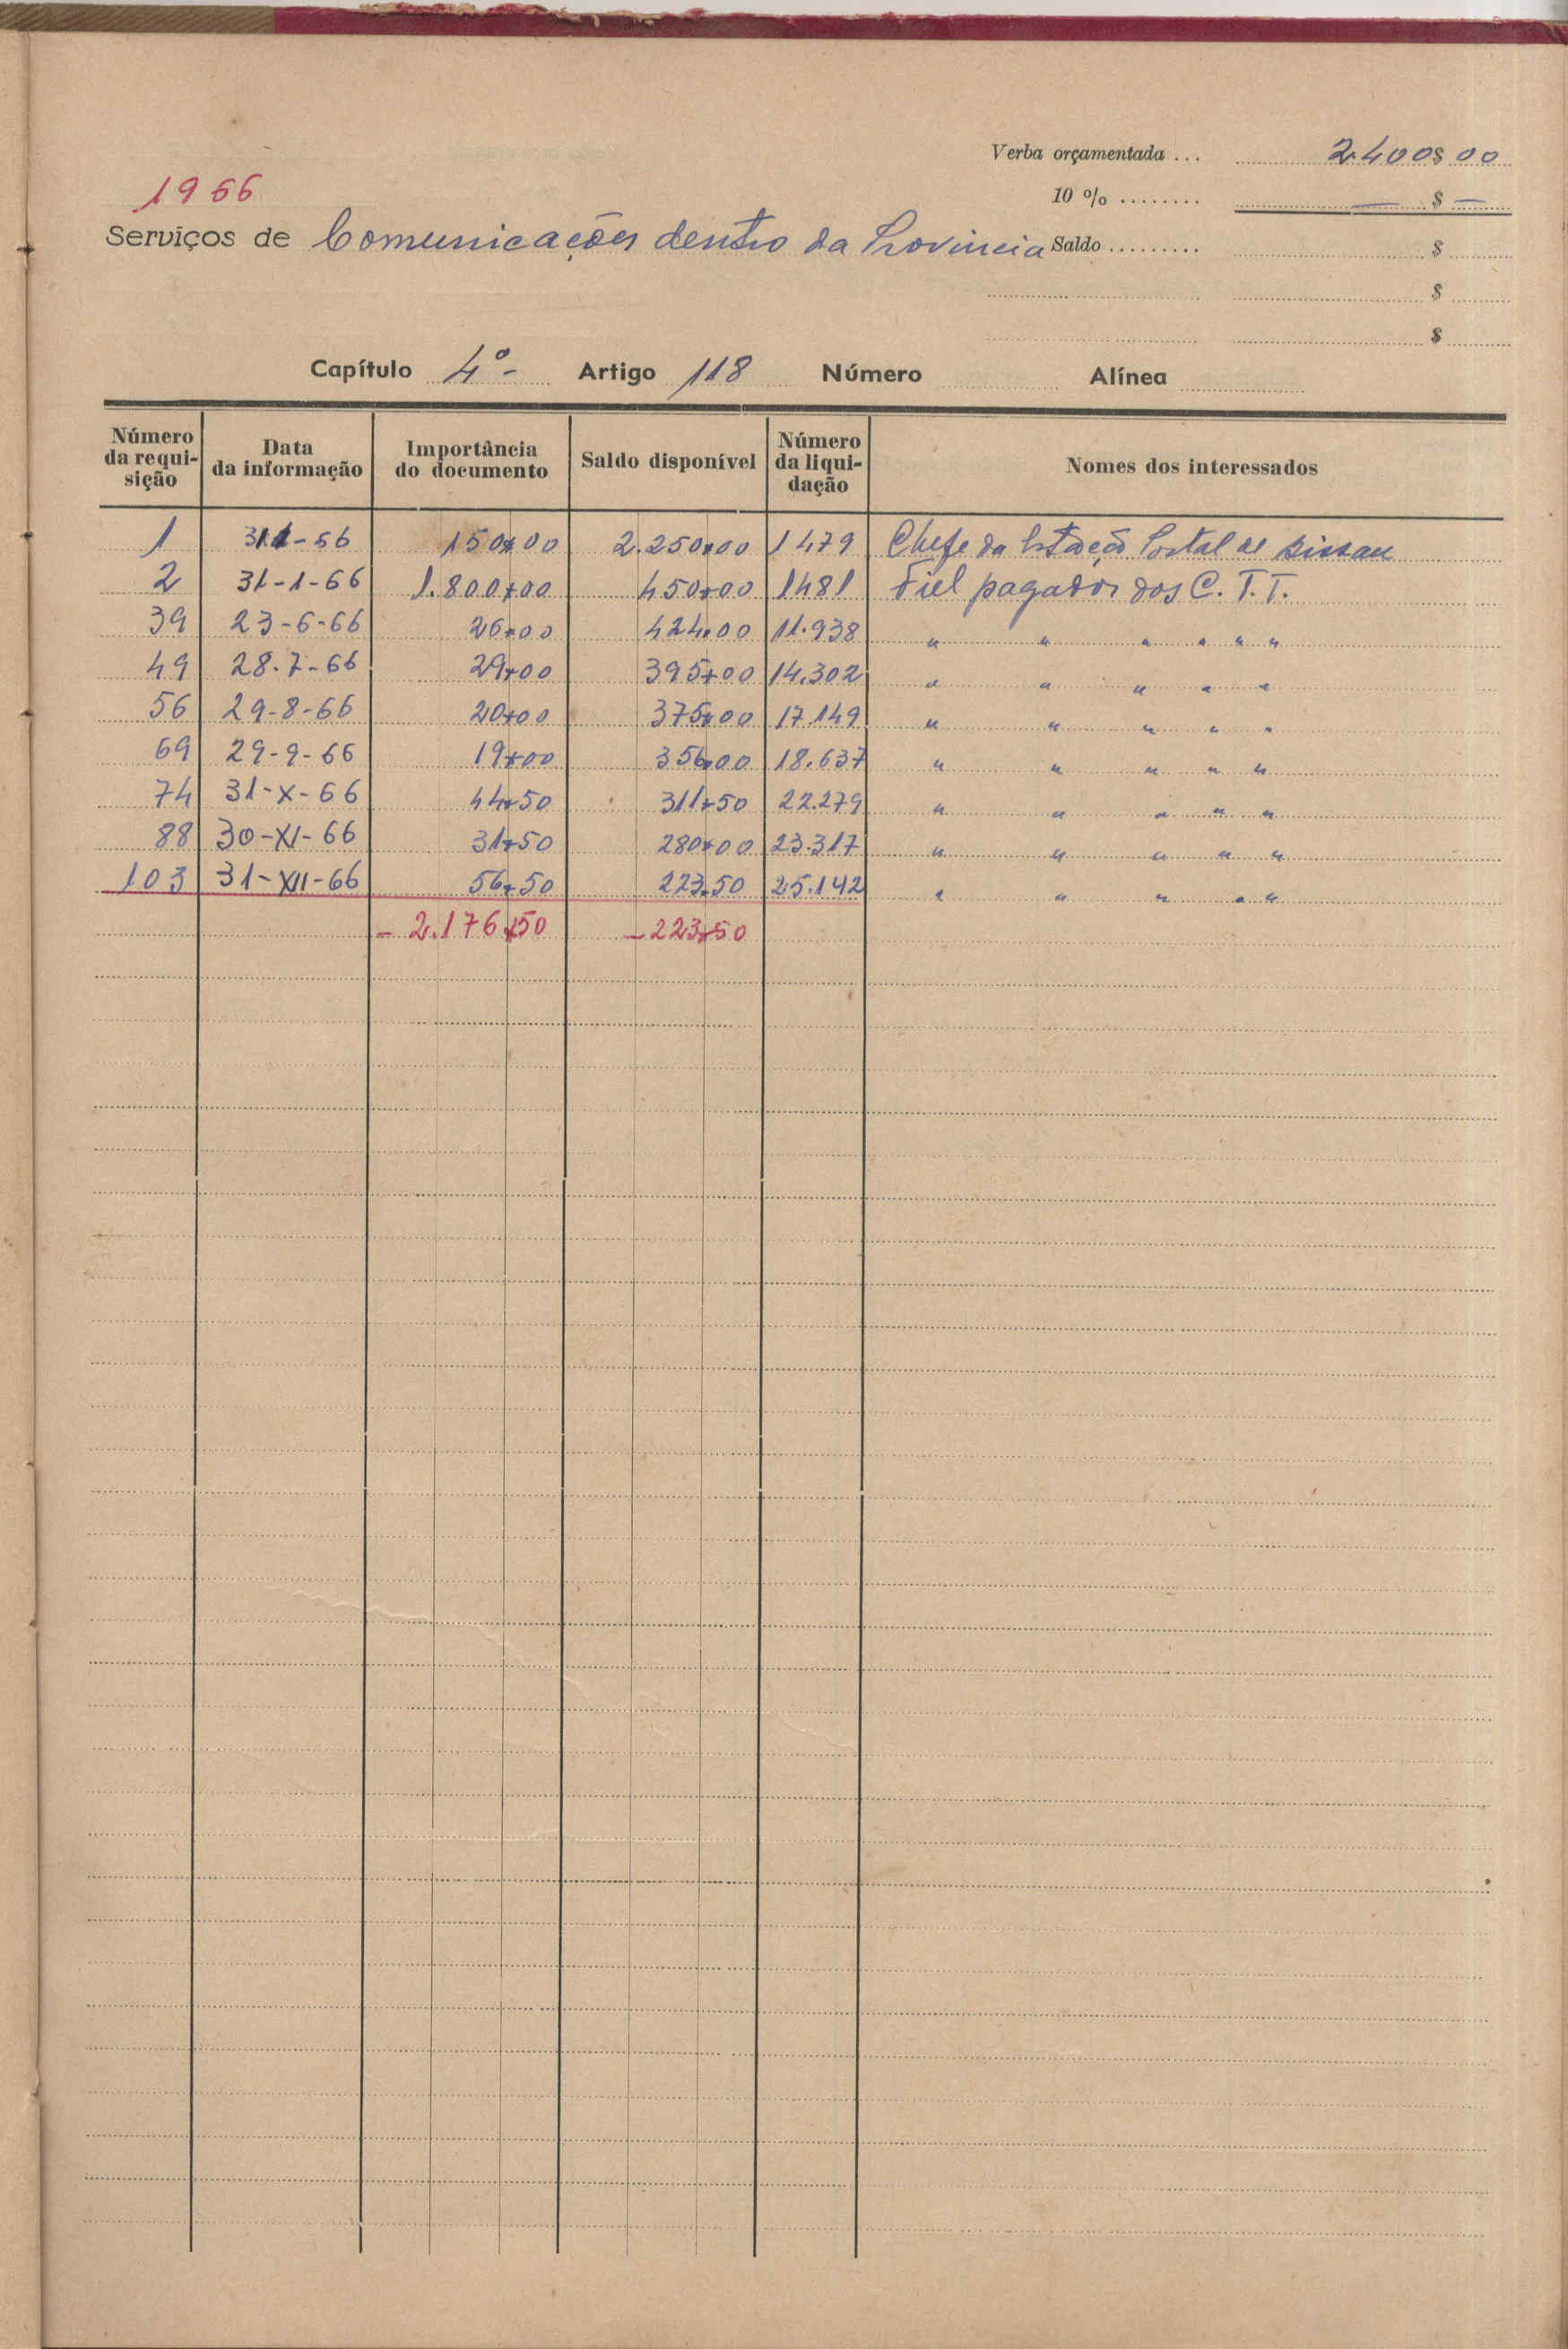 Verba orçamentada ... 2.400$00
1966
10 % ........ — $ —
Serviços de Comunicações dentro da Provincia Saldo ......... $
$
$
Capítulo 4º- Artigo 118 Número Alínea
Número da requisição Data da informação Importância do documento Saldo disponível Número da liquidação Nomes dos interessados
1 31-1-66 150$00 2.250$00 1479 Chefe da Estação Postal de Bissau
2 31-1-66 1.800$00 450$00 1481 Fiel pagador dos C.T.T.
39 23-6-66 26$00 424$00 11.938 " " " " " "
49 28.7-66 29$00 395$00 14.302 " " " " "
56 29-8-66 20$00 375$00 17.149 " " " " "
69 29-9-66 19$00 356$00 18.637 " " " " "
74 31-X-66 44$50 311$50 22.279 " " " " "
88 30-XI-66 31$50 280$00 23.317 " " " " "
103 31-XII-66 56$50 223$50 25.142 " " " " "
- 2.176$50 - 223$50